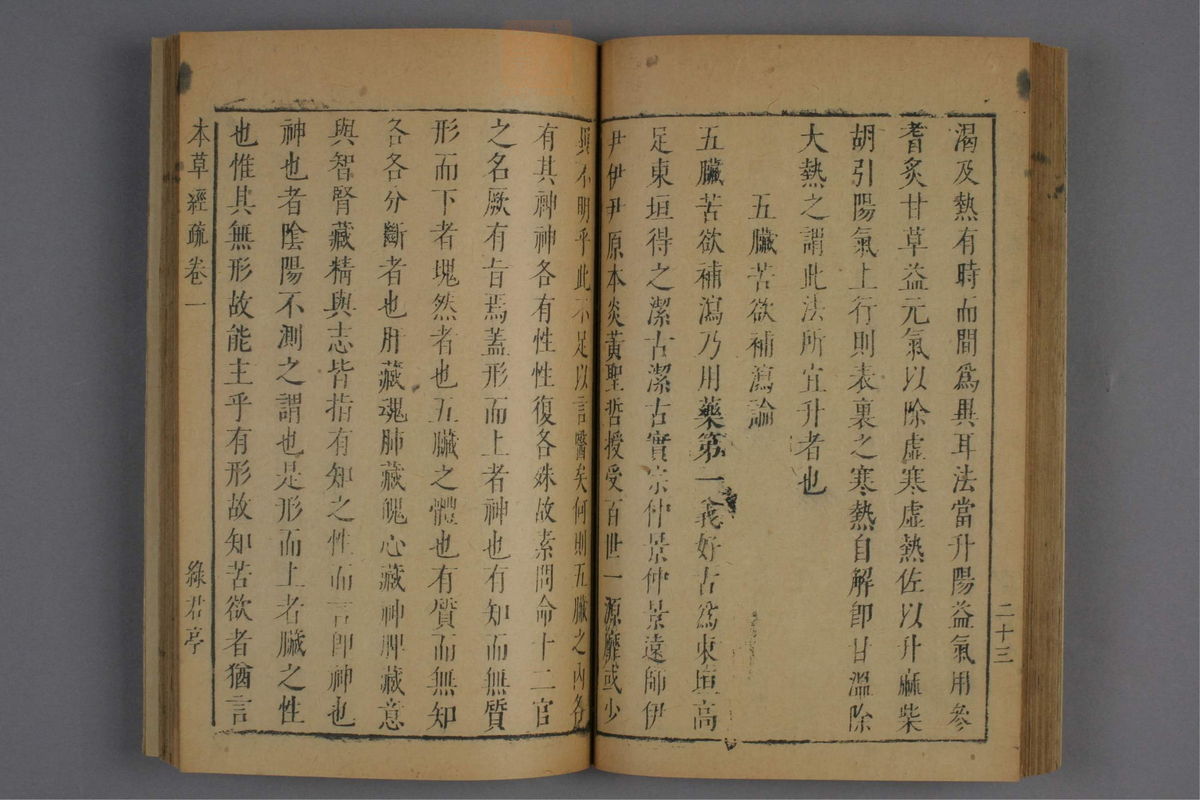 渴及熱有時而間爲異耳法當升陽益氣用參
耆炙甘草益元氣以除虛寒虛熱佐以升麻柴
胡引陽氣上行則表裏之寒熱自解卽甘溫除
大熱之謂此法所宜升者也
五臟苦欲補瀉論
五臟苦欲補瀉乃用藥第一義好古爲東垣高
足東垣得之潔古潔古實宗仲景仲景遠師伊
尹伊尹原本炎黃聖哲授受百世一源靡或少
異不明乎此不足以言醫矣何則五臟之內各
有其神神各有性性復各殊故素問命十二官
之名厥有旨焉蓋形而上者神也有知而無質
形而下者塊然者也五臟之體也有質而無知
各各分斷者也肝藏魂肺藏魄心藏神脾藏意
與智腎藏精與志皆指有知之性而言卽神也
神也者陰陽不測之謂也是形而上者臟之性
也惟其無形故能主乎有形故知苦欲者猶言
本草經疏卷一
綠君亭
二十三